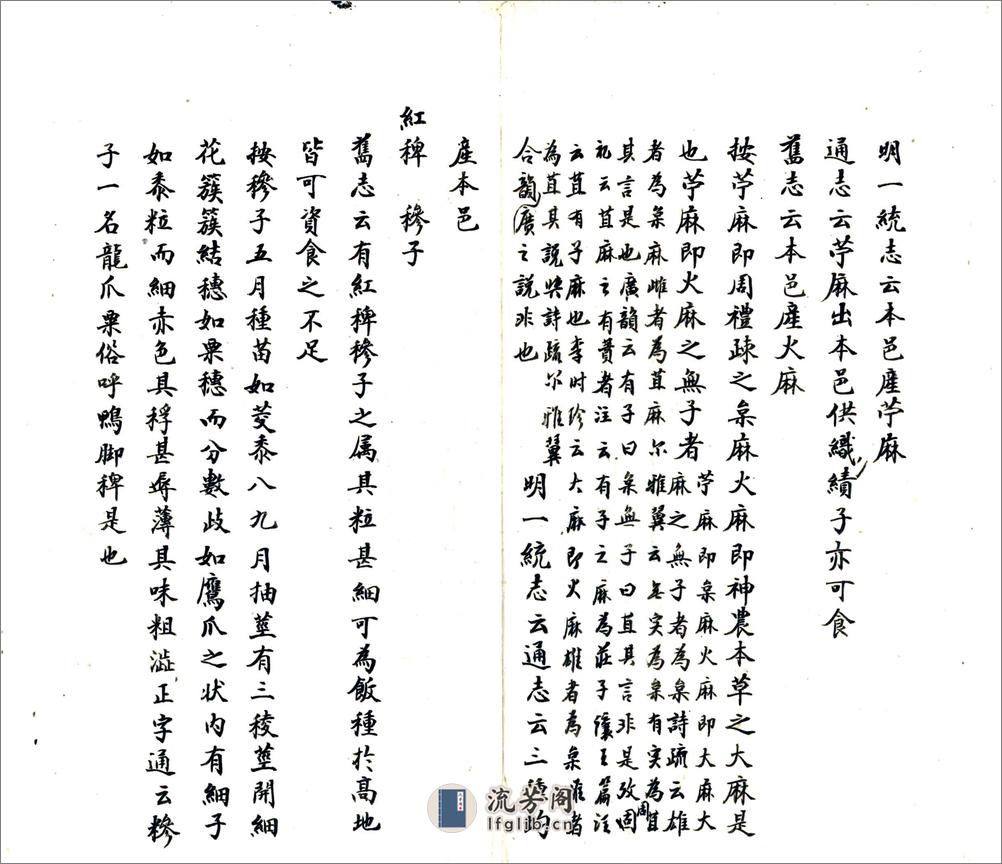 明一統志云本邑産苧麻
通志云苧麻出本邑供織績子亦可食
舊志云本邑産火麻
按苧麻即周禮疎之枲麻火麻即神農本草之大麻是
也苧麻即火麻之無子者
苧麻即枲麻火麻即大麻大
麻之無子者為枲詩疏云雄
者為枲麻雌者為苴麻尓雅翼云無实為枲有実為苴
其言是也廣韻云有子曰枲無子曰苴其言非是攷周
礼云苴麻之有蕡者注云有子之麻為莊子讓王篇注
云苴有子麻也李时珍云大麻即火麻雄者為枲雌者
為苴其説與詩疏尓雅翼
合韻廣之説非也
明一統志云通志云三種均
産本邑
紅稗 穇子
舊志云有紅稗穇子之属其粒甚細可為飯種於高地
皆可資食之不足
按穇子五月種苗如茭黍八九月抽莖有三稜莖開細
花簇簇結穗如粟穗而分數歧如鷹爪之状内有細子
如黍粒而細赤色其稃甚辱薄其味粗澁正字通云穇
子一名龍爪粟俗呼鴨脚稗是也
流芳阁
lfglib.cn